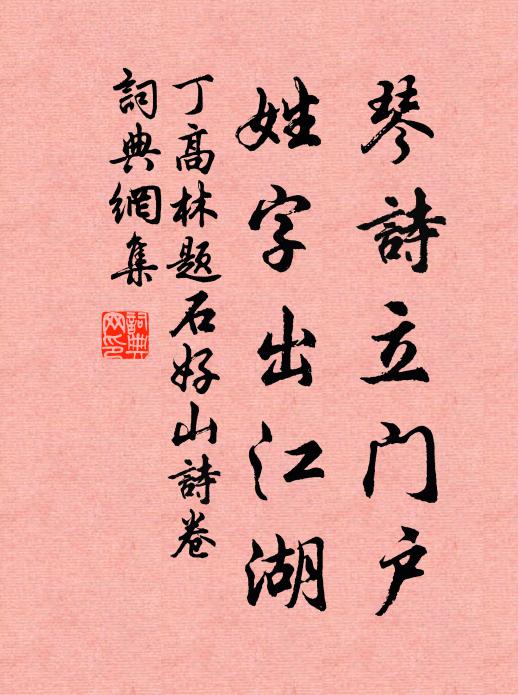 琴詩立门户
姓字出江湖
丁高林题石好山詩卷
詞典網集
詞典网印